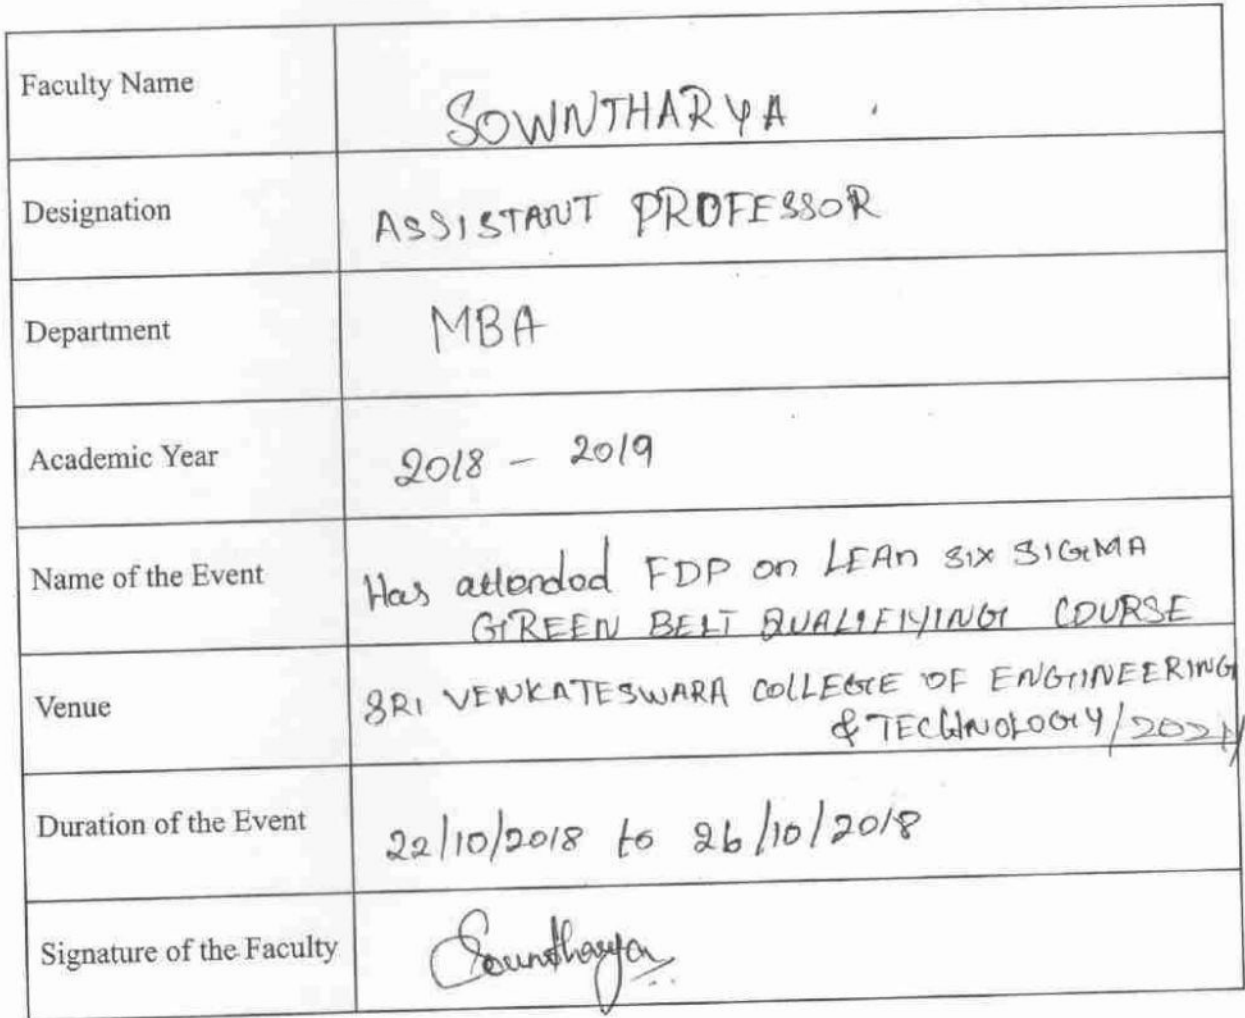 Faculty Name
SOWNTHARYA
Designation
ASSISTANT PROFESSOR
Department
MBA
Academic Year
2018 - 2019
Name of the Event
Has attended FDP on LEAn SIX SIGMA
GREEN BELT QUALIFIYING COURSE
Venue
SRI VENKATESWARA COLLEGE OF ENGINEERING
& TECHNOLOGY/2021/
Duration of the Event
22/10/2018 to 26/10/2018
Signature of the Faculty
Sountharya